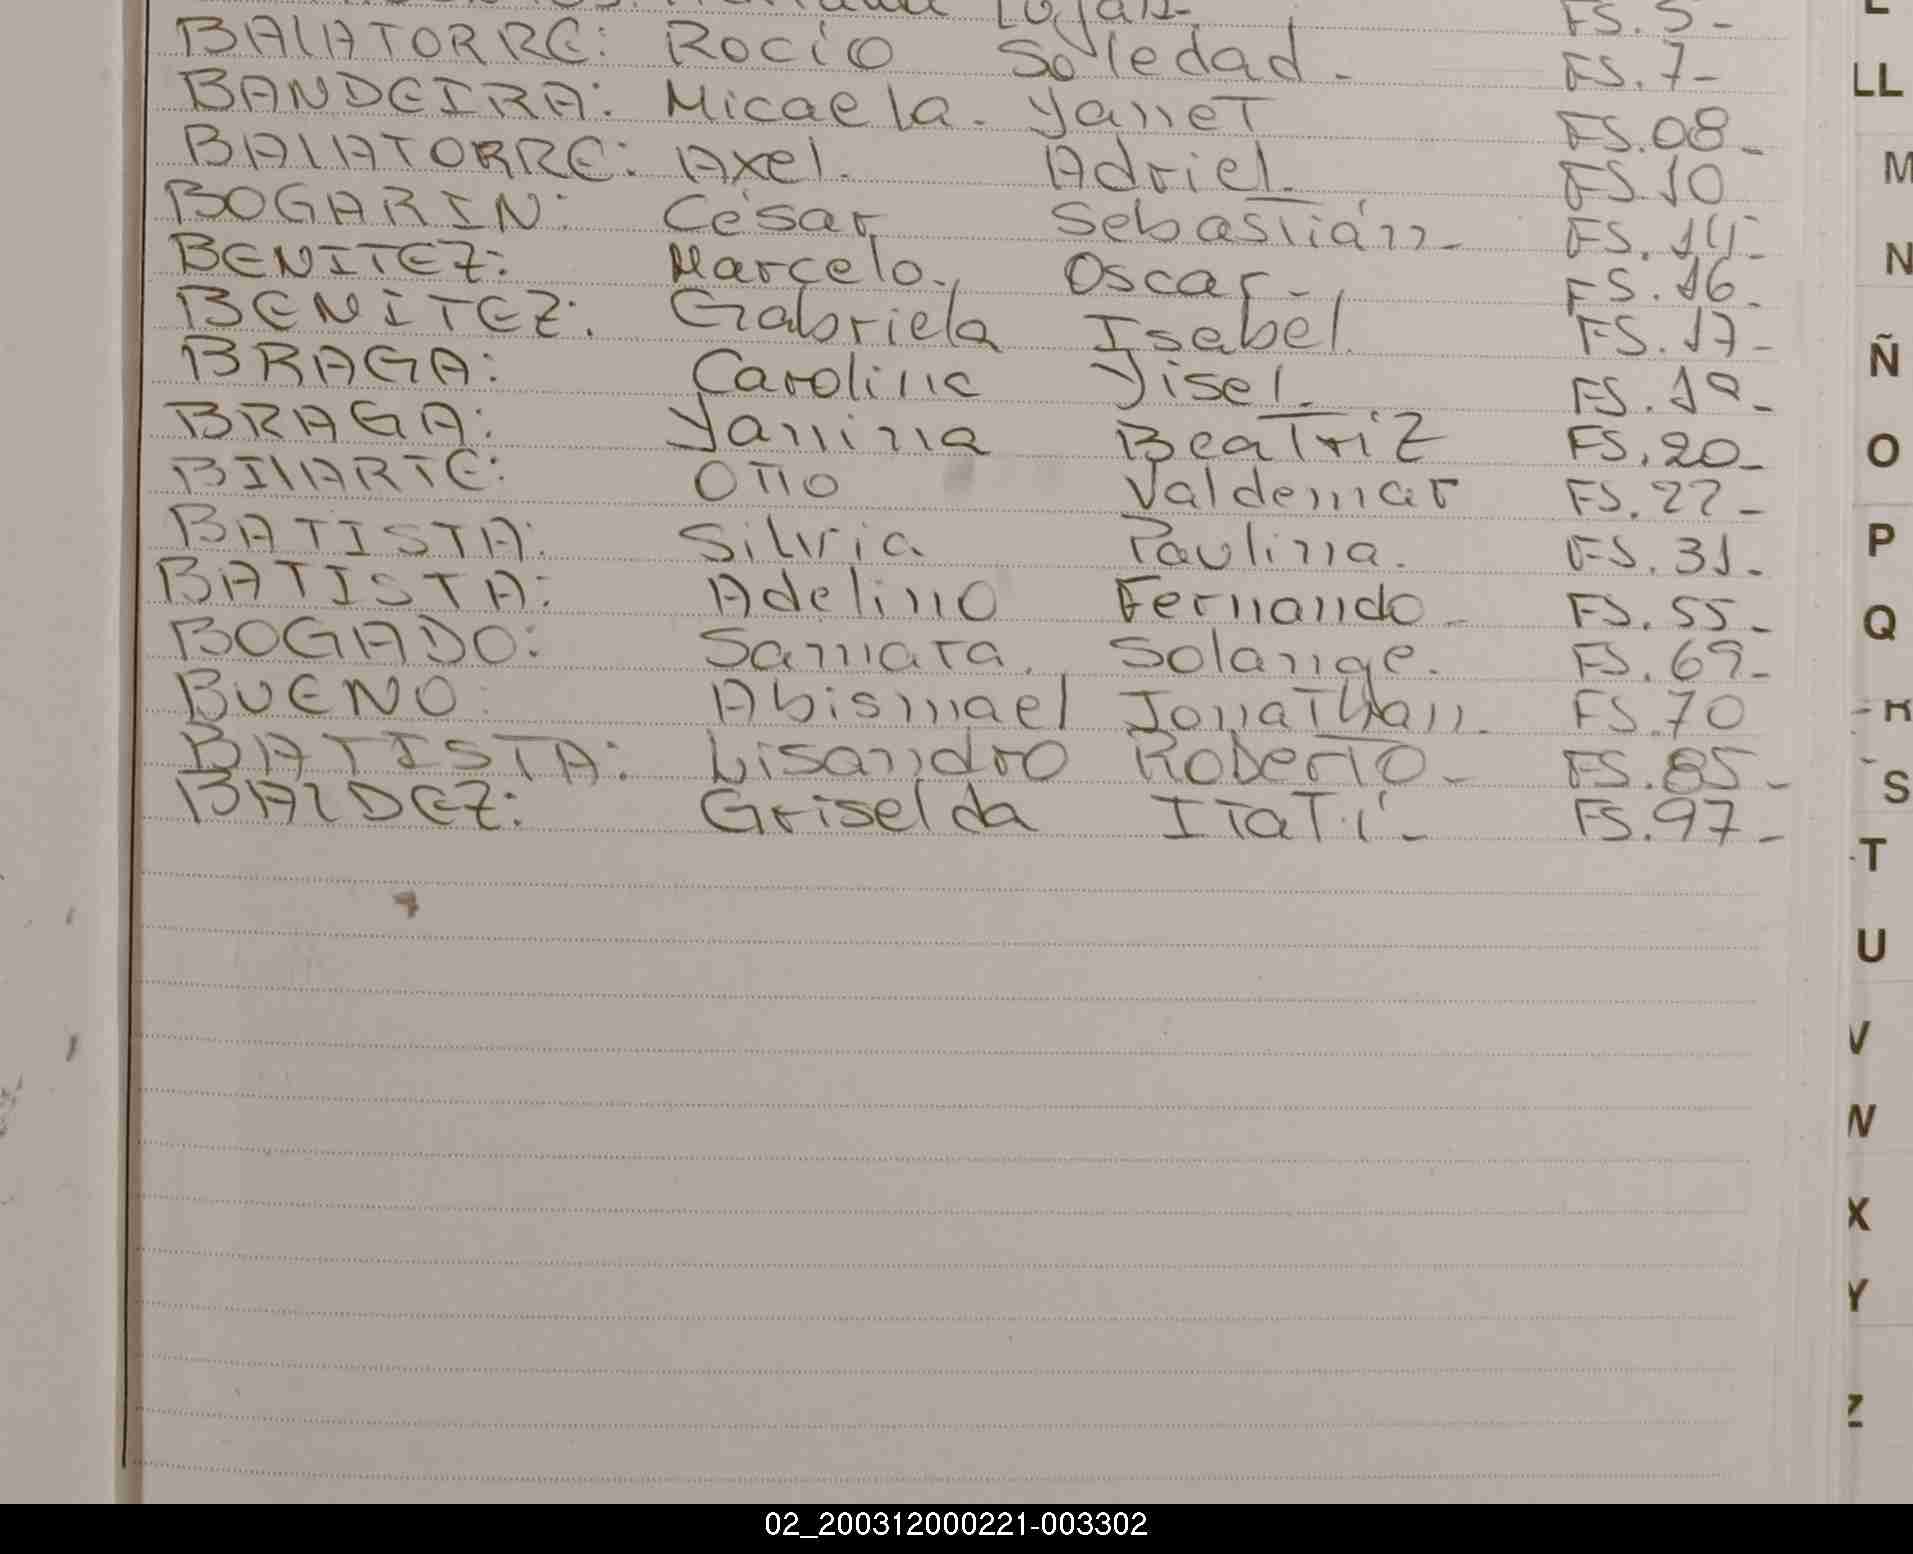 FS. 5-
BALATORRE: Rocío Soledad. FS. 7-
BANDEIRA: Micaela. Yannet FS. 08-
BALATORRE: Axel. Adriel. FS. 10
BOGARIN: César Sebastián- FS. 14-
BENITEZ: Marcelo. Oscar- FS. 16-
BENITEZ: Gabriela Isabel. FS. 17-
BRAGA: Carolina Yisel. FS. 19-
BRAGA: Yanina Beatriz FS. 20-
BILARTE: Otto Valdemar FS. 22-
BATISTA: Silvia Paulina. FS. 31-
BATISTA: Adelino Fernando- FS. 55-
BOGADO: Samara. Solange. FS. 69-
BUENO: Abismael Jonathan. FS. 70
BATISTA: Lisandro Roberto- FS. 85-
BALDEZ: Griselda Itatí- FS. 97-
LL
M
N
Ñ
O
P
Q
R
S
T
U
V
W
X
Y
Z
02_200312000221-003302